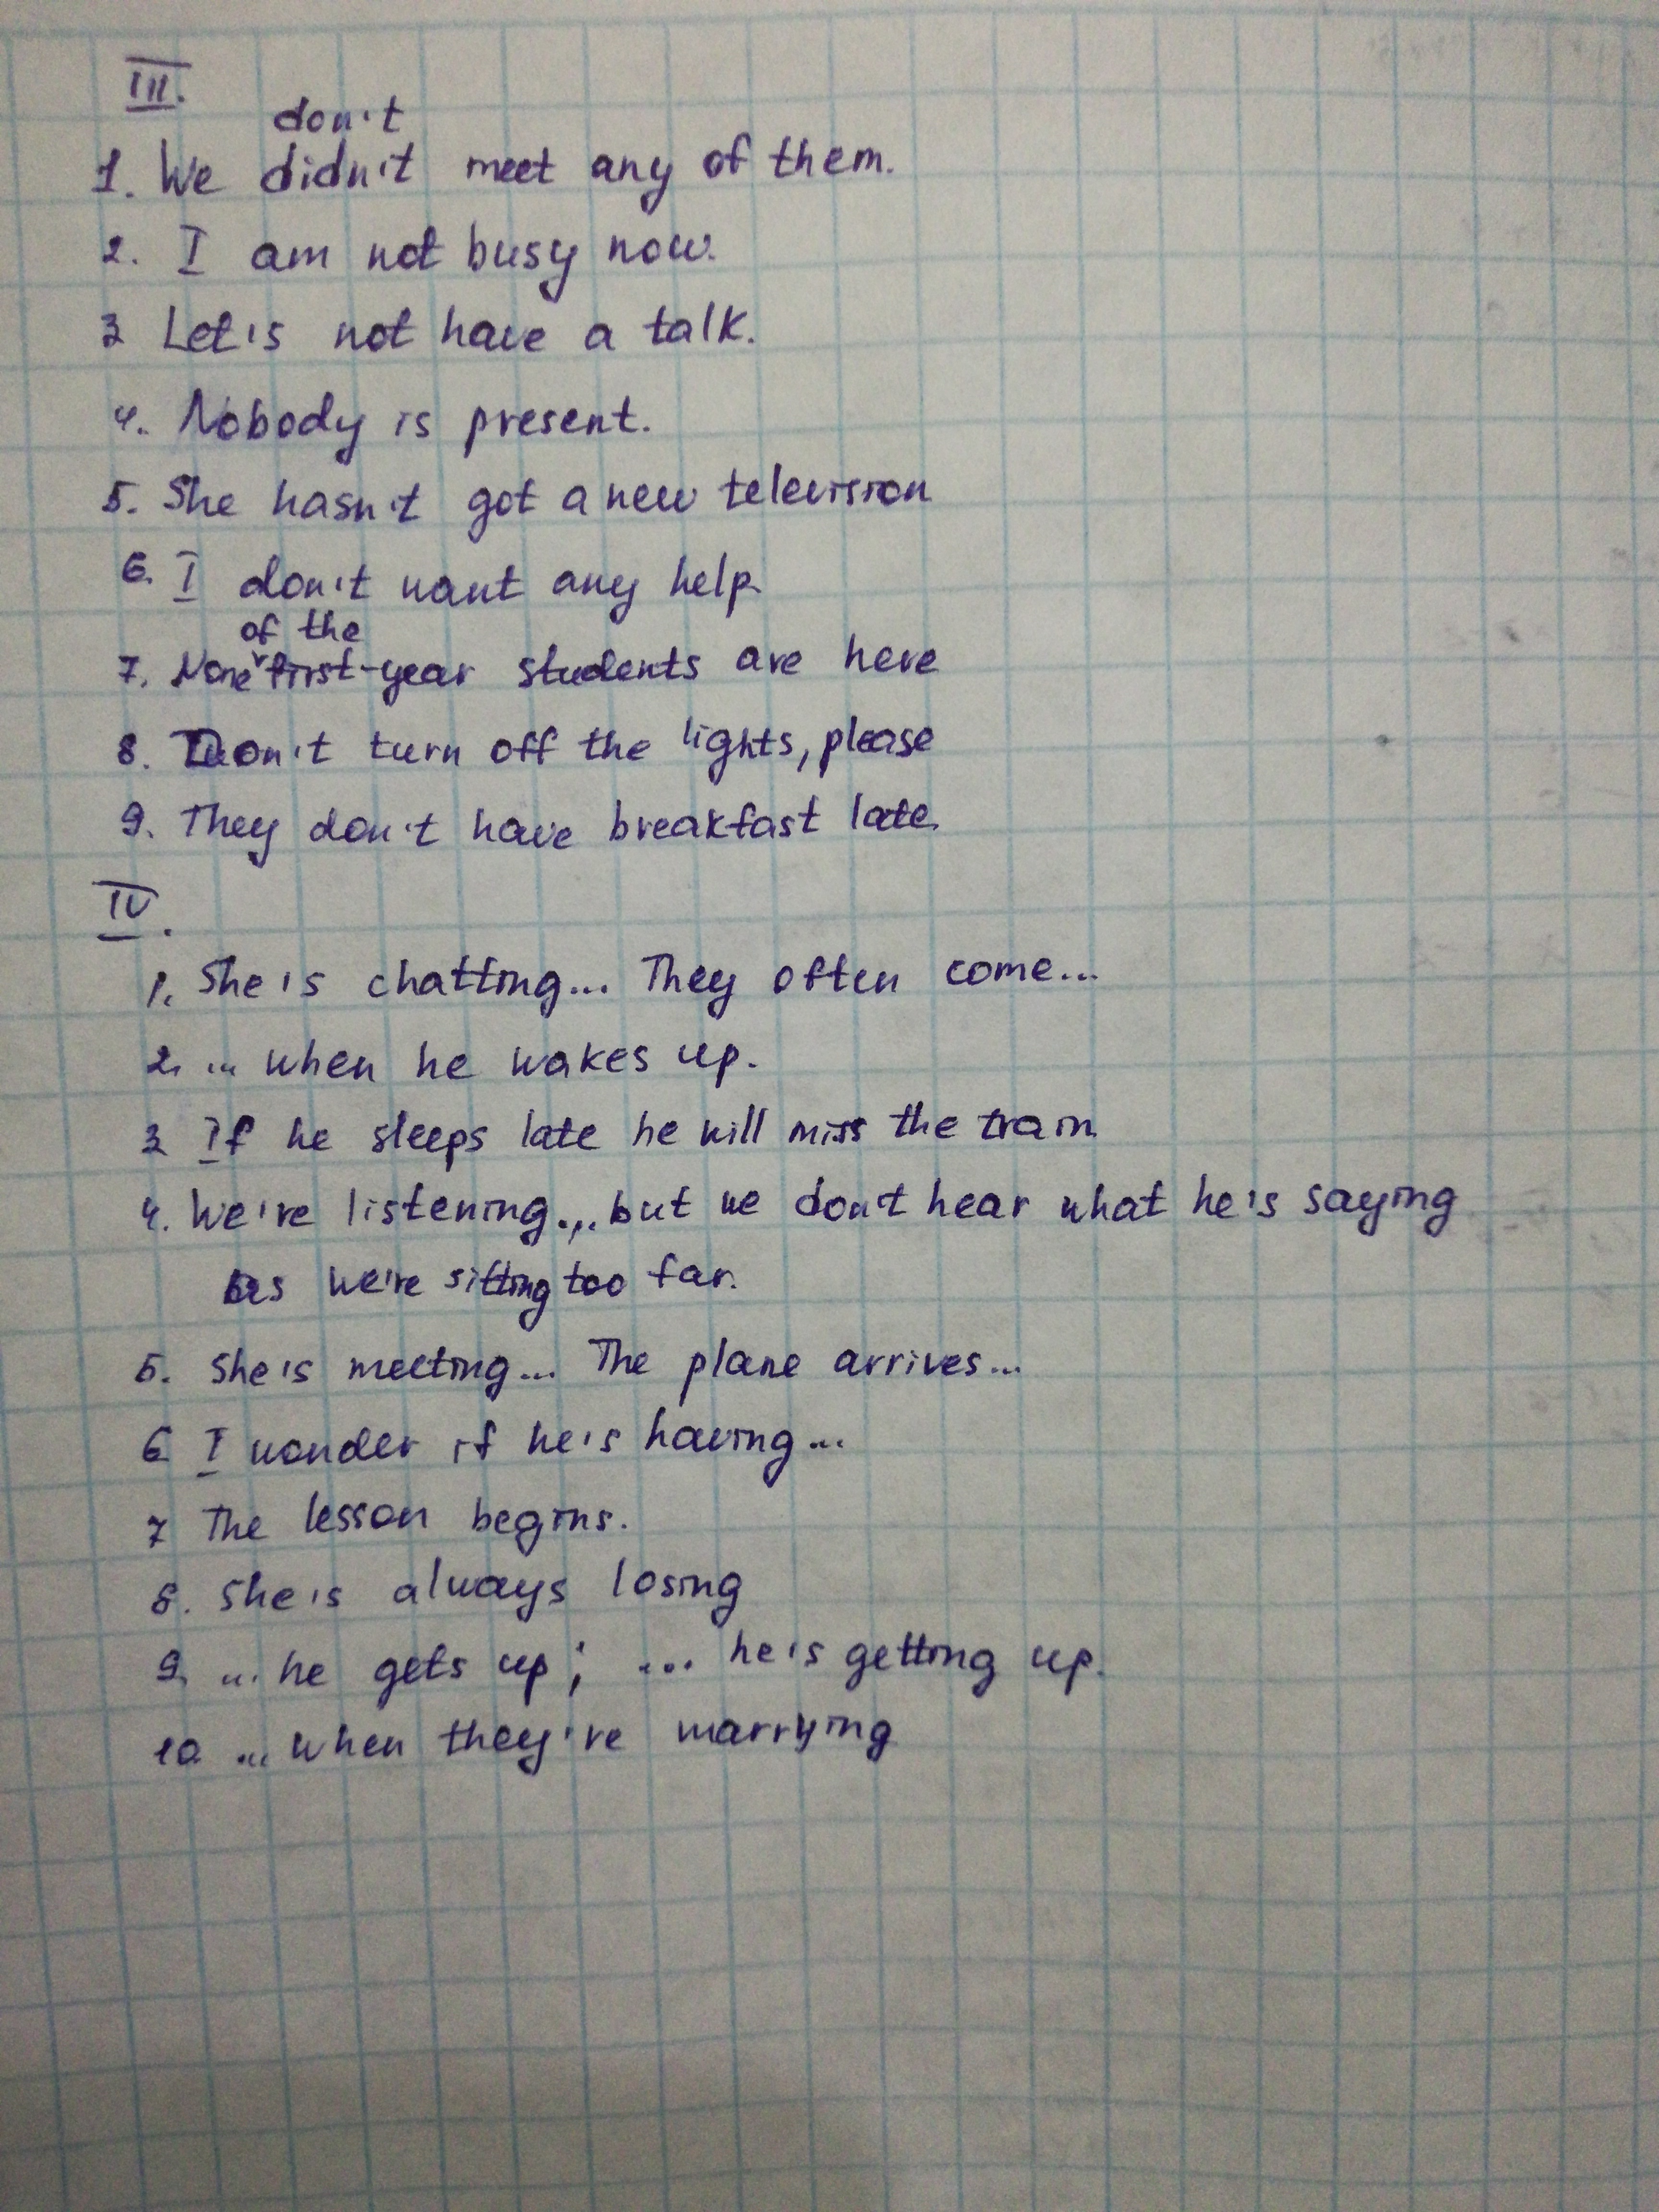 III.
don't
1. We didn't meet any of them.
2. I am not busy now.
3 Let's not have a talk.
4. Nobody is present.
5. She hasn't got a new television
6. I don't want any help.
of the
7. None first-year students are here
8. Don't turn off the lights, please
9. They don't have breakfast late.
IV.
1. She's chatting... They often come...
2. ... when he wakes up.
3 If he sleeps late he will miss the train
4. We're listening... but we don't hear what he's saying
as we're sitting too far.
5. She's meeting... The plane arrives...
6 I wonder if he's having...
7 The lesson begins.
8. She's always losing
9. ... he gets up; ... he's getting up.
10 ... when they're marrying